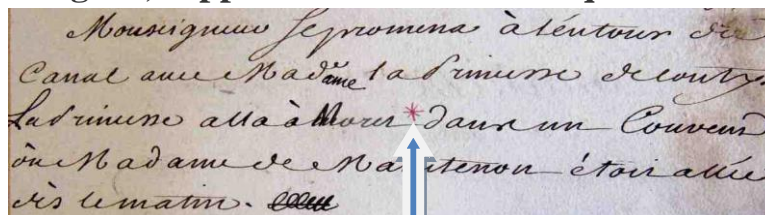 Monseigneur se promena à lentour du
Canal avec Madame la Princesse de Conty,
La Princesse alla à Moret * dans un Couvent
ou Madame de Maintenon étoit allée
dès le matin.